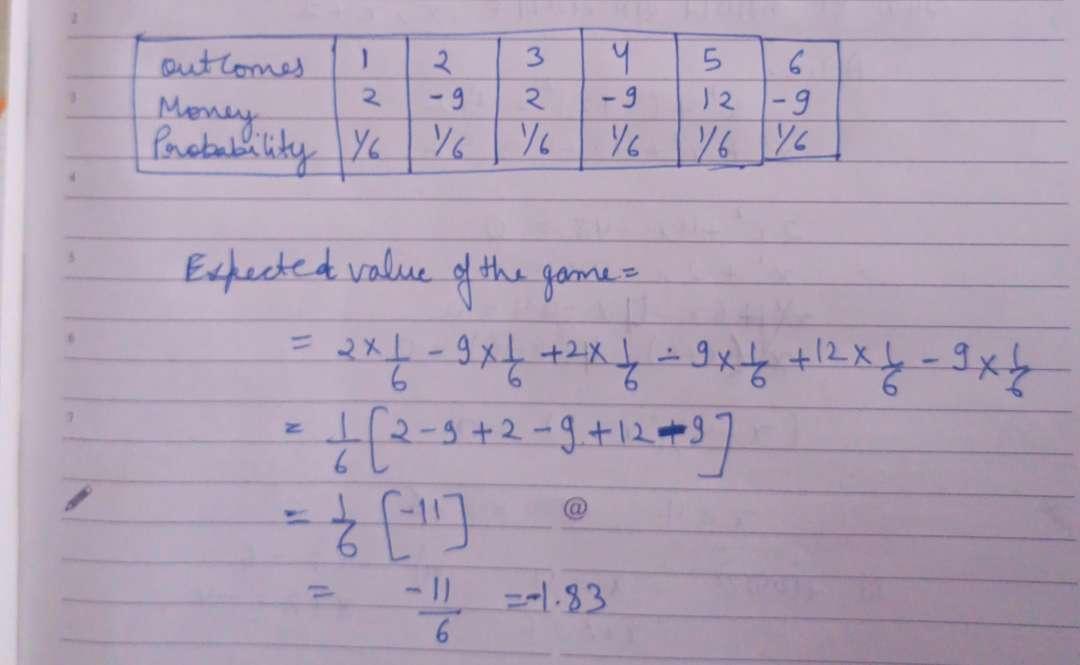 outcomes 1 2 3 4 5 6
Money 2 -9 2 -9 12 -9
Probability 1/6 1/6 1/6 1/6 1/6 1/6
Expected value of the game =
= 2 × 1/6 - 9 × 1/6 + 2 × 1/6 - 9 × 1/6 + 12 × 1/6 - 9 × 1/6
= 1/6 [2 - 9 + 2 - 9 + 12 - 9]
= 1/6 [-11] @
= -11/6 = -1.83